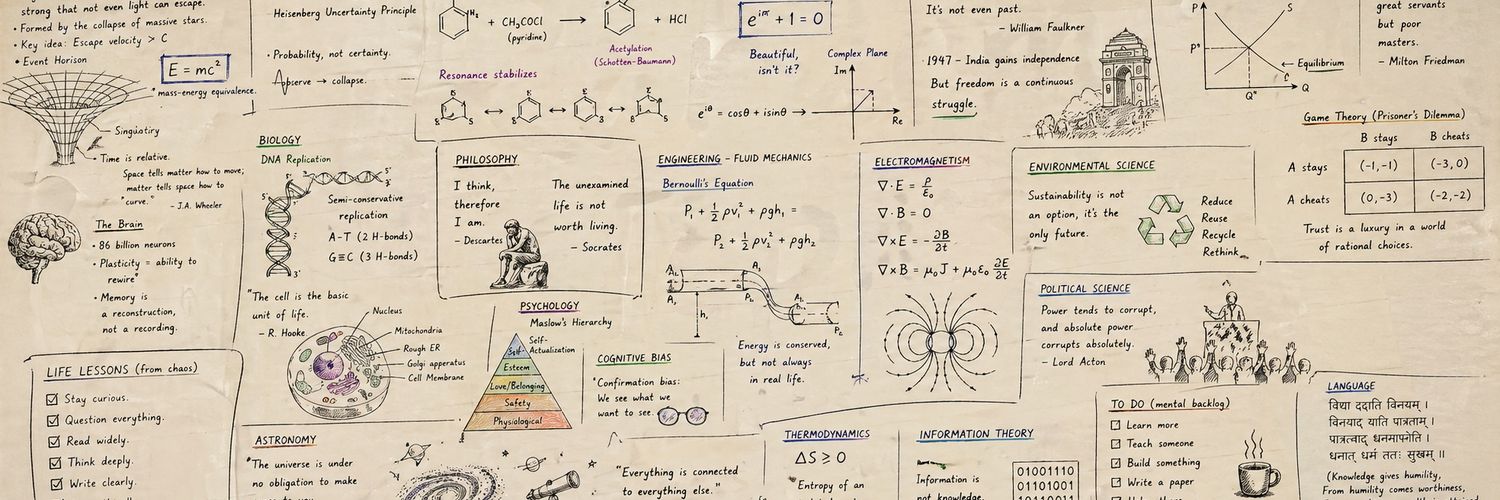 strong that not even light can escape.
• Formed by the collapse of massive stars.
• Key idea: Escape velocity > C
• Event Horison
E = mc²
"mass-energy equivalence.
Singularity
Time is relative.
Space tells matter how to move;
matter tells space how to
"curve."
- J.A. Wheeler
The Brain
• 86 billion neurons
• Plasticity = ability to
rewire"
• Memory is
a reconstruction,
not a recording.
LIFE LESSONS (from chaos)
☑ Stay curious.
☑ Question everything.
☑ Read widely.
☑ Think deeply.
☑ Write clearly.
Heisenberg Uncertainty Principle
• Probability, not certainty.
→ collapse.
BIOLOGY
DNA Replication
5'
5'
3'
3'
Semi-conservative
replication
A-T (2 H-bonds)
G≡C (3 H-bonds)
"The cell is the basic
unit of life.
- R. Hooke.
Nucleus
Mitochondria
Rough ER
Golgi apparatus
Cell Membrane
ASTRONOMY
"The universe is under
no obligation to make
+ CH₃COCl
(pyridine)
→
+ HCl
Acetylation
(Schotten-Baumann)
Resonance stabilizes
PHILOSOPHY
I think,
therefore
I am.
- Descartes
The unexamined
life is not
worth living.
- Socrates
PSYCHOLOGY
Maslow's Hierarchy
Self-
Self-
Actualization
Esteem
Love/Belonging
Safety
Physiological
COGNITIVE BIAS
"Confirmation bias:
We see what we
want to see.
"Everything is connected
to everything else."
e^iπ + 1 = 0
Beautiful,
isn't it?
Complex Plane
Im
Re
e^iθ = cosθ + isinθ →
ENGINEERING - FLUID MECHANICS
Bernoulli's Equation
P₁ + 1/2 ρv₁² + ρgh₁ =
P₂ + 1/2 ρv₂² + ρgh₂
h₁
Energy is conserved,
but not always
in real life.
THERMODYNAMICS
ΔS ≥ 0
Entropy of an
It's not even past.
- William Faulkner
• 1947 - India gains independence
But freedom is a continuous
struggle.
ELECTROMAGNETISM
∇·E = ρ/ε₀
∇·B = 0
∇×E = -∂B/∂t
∇×B = μ₀J + μ₀ε₀ ∂E/∂t
INFORMATION THEORY
Information is
not knowledge.
01001110
01101001
ENVIRONMENTAL SCIENCE
Sustainability is not
an option, it's the
only future.
Reduce
Reuse
Recycle
Rethink
POLITICAL SCIENCE
Power tends to corrupt,
and absolute power
corrupts absolutely.
- Lord Acton
TO DO (mental backlog)
☑ Learn more
☐ Teach someone
☐ Build something
☐ Write a paper
P
S
P*
Equilibrium
Q*
Q
great servants
but poor
masters.
- Milton Friedman
Game Theory (Prisoner's Dilemma)
B stays
B cheats
A stays
(-1,-1)
(-3,0)
A cheats
(0,-3)
(-2,-2)
Trust is a luxury in a world
of rational choices.
LANGUAGE
विद्या ददाति विनयम् ।
विनयाद् याति पात्रताम् ।
पात्रत्वाद् धनमाप्नोति ।
धनात् धर्मं ततः सुखम् ॥
(Knowledge gives humility,
From humility comes worthiness,